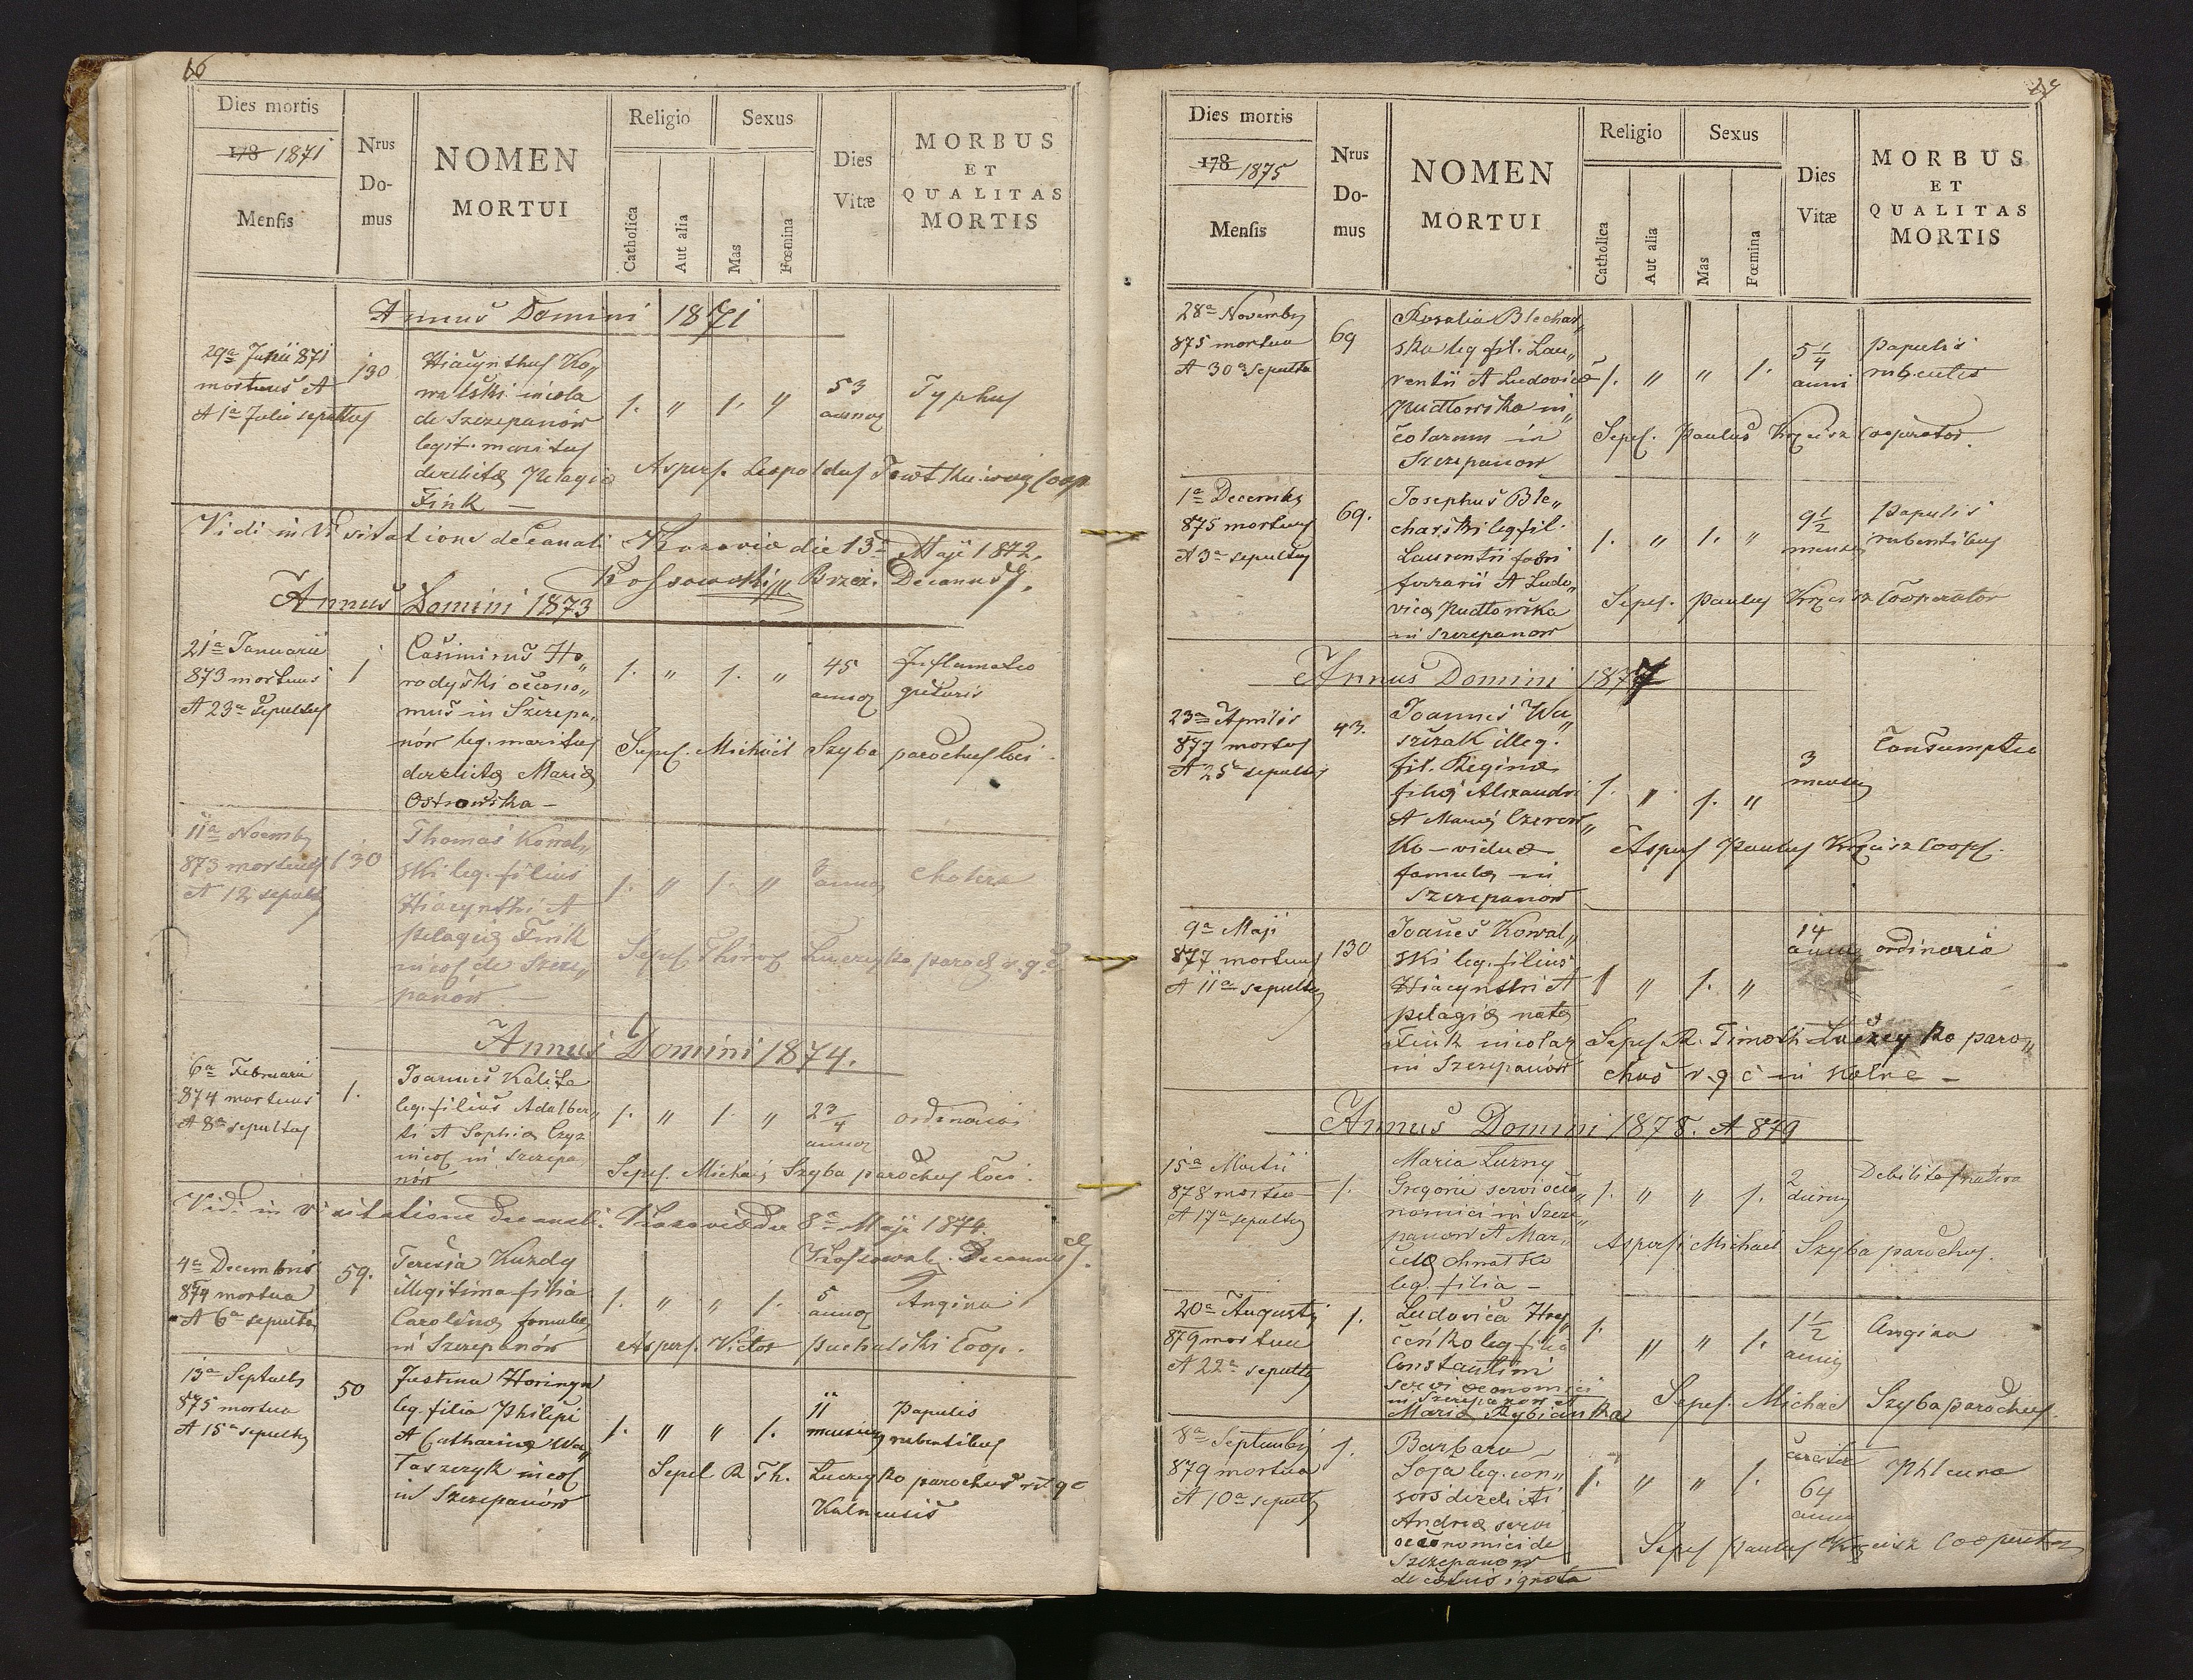 16
Dies mortis
178 1871
Mensis
Nrus
Do-
mus
NOMEN
MORTUI
Religio
Catholica
Aut alia
Sexus
Mas
Fœmina
Dies
Vitæ
MORBUS
ET
QUALITAS
MORTIS
Annus Domini 1871
29a Junii 871
mortuus et
et 1a Julii sepultus
130
Hiacynthus Ko„
walski incola
de Szczepanów
legit. maritus
derelictæ Pelagiæ
Fink —
1. „ 1. „
53
annor
Typhus
Aspers. Leopoldus Coop
Vidi in Visitatione decanali Kozoviæ die 13a Maji 1872.
Kossowski Brzeż. Decanus
Annus Domini 1873
21a Januarii
873 mortuus
et 23a sepultus
1
Casimirus Ho„
rodyski œcono„
mus in Szczepa„
nów leg. maritus
derelictæ Mariæ
Ostrowska —
1. „ 1. „
45
annor
Inflamatio
guturis
Sepel. Michael Szyba parochus loci
11a Novembr
873 mortuus
et 12 sepultus
130
Thomas Kowal„
ski leg. filius
Hiacynthi et
Pelagiæ Fink
incol de Szcze„
panów
1. „ 1. „
annor
cholera
Sepel Łuczeyko paroch r. g. c
Annus Domini 1874.
6a Februarii
874 mortuus
et 8a sepultus
1.
Joannes Kalita
leg. filius Adalber„
ti et Sophiæ Czyz
incol in Szczepa
nów
1. „ 1. „
2 3/4
annor
ordinaria
Sepel. Michael Szyba parochus loci.
Vidi in visitatione decanali Kozoviæ die 8a Maji 1874.
Kossowski Decanus
4a Decembris
874 mortua
et 6a sepulta
59.
Teresia Kuzdy
illegitima filia
Carolinæ famulæ
in Szczepanów
1. „ „ 1.
5
annor
Angina
Aspers. Victor Puchalski Coop.
13a Septembr
875 mortua
et 15a sepulta
50
Justina Horingn
leg. filia Philipi
et Catharinæ Wa„
taszczyk incol
in Szczepanów
1. „ „ 1.
11
mensium
Papulis
rubentibus
Sepel R. Th. Łuczeyko parochus r. g c
Kalnensis
Dies mortis
178 1875
Mensis
Nrus
Do-
mus
NOMEN
MORTUI
Religio
Catholica
Aut alia
Sexus
Mas
Fœmina
Dies
Vitæ
MORBUS
ET
QUALITAS
MORTIS
28a Novembr
875 mortua
et 30a sepulta
69
Rosalia Blechar„
ska leg fil. Lau„
rentii et Ludovicæ
Rudtowska in„
colarum in
Szczepanow
1. „ „ 1.
5 1/4
anni
Papulis
Sepel. Paulus Krzcisz Cooperator.
1a Decembr
875 mortuus
et 3a sepultus
69.
Josephus Ble„
charski leg fil.
Laurentii fabri
ferrarii et Ludo„
vicæ Rudtowska
in Szczepanow
1. „ 1. „
9 1/2
mensis
Papulis
rubentibus
Sepel. Paulus Krzcisz Cooperator
Annus Domini 1877
23a Aprilis
877 mortuus
et 25a sepultus
43.
Joannes Wa„
szczak illeg.
fil. Reginæ
filiæ Alexandri
et Mariæ Czerow„
ko — viduæ
famulæ in
Szczepanów
1. „ 1. „
3
mensis
Consumptio
Aspers Paulus Krzcisz Coop.
9a Maji
877 mortuus
et 11a sepultus
130
Joanes Kowal„
ski leg. filius
Hiacynthi et
Pelagiæ nata
Fink incolar
in Szczepanów
1 „ 1. „
14
annor
ordinaria
Sepel R. Timoth Łuczeyko paro„
chus r. g c in Kalne —
Annus Domini 1878. et 879
15a Martii
878 mortua
et 17a sepulta
1.
Maria Luzny
Gregorii servi œco„
nomici in Szcze„
panow et Mar„
celæ Chwatko
leg. filia —
1. „ „ 1.
2
dierum
Debilitas nativa
Aspersi Michael Szyba parochus.
20a Augusti
879 mortua
et 22a sepulta
1.
Ludovica Hre„
czeńko leg filia
Constantini
servi œconomici
in Szczepanow et
Mariæ Rybianka
1. „ „ 1.
1 1/2
annis
Angina
Sepel. Michael Szyba parochus.
8a Septembris
879 mortua
et 10a sepulta
1.
Barbara
Soja leg. con„
sors derelicti
Andreæ servi
oeconomici de
Szczepanow
1. „ „ 1.
circiter
64
annor
Phleura
Sepel Paulus Krzcisz Cooperator